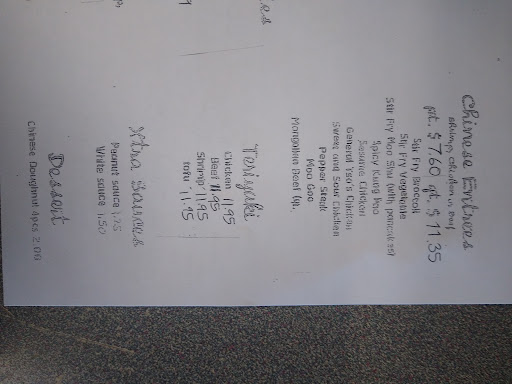 Chinese Entrees
shrimp, chicken or beef
pt. $7.60 qt. $11.35
Stir Fry Broccoli
Stir Fry Vegetable
Stir Fry Moo Shu (with pancakes)
Spicy Kung Pao
Sesame Chicken
General Tso's Chicken
Sweet and Sour Chicken
Pepper Steak
Moo Goo
Mongolian Beef
Teriyaki
Chicken 11.95
Beef 11.95
Shrimp 11.95
Tofu 11.95
Xtra Sauces
Peanut sauce 1.75
White sauce 1.50
Dessert
Chinese Doughnut 4pcs 2.00